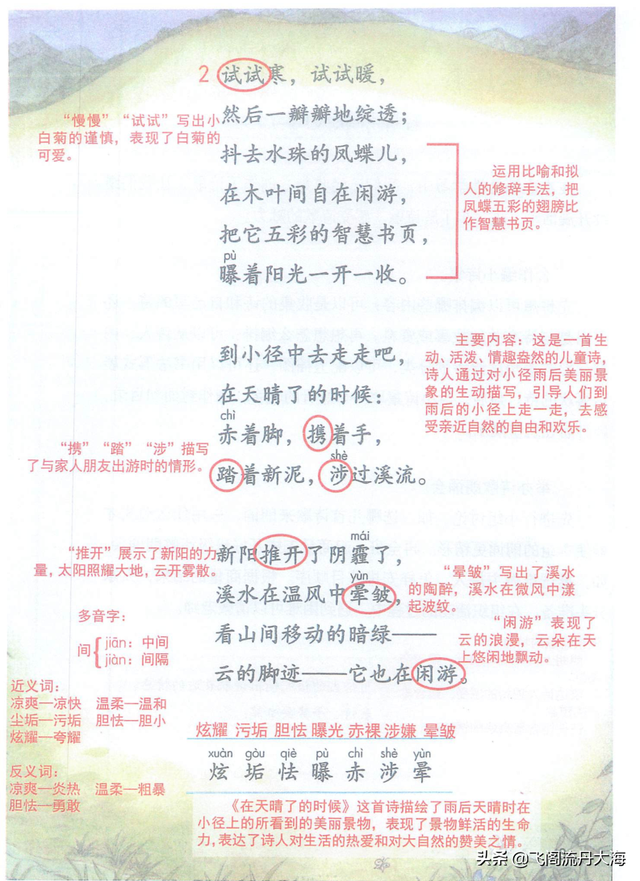 2 试试寒，试试暖，
然后一瓣瓣地绽透；
抖去水珠的凤蝶儿，
在木叶间自在闲游，
把它五彩的智慧书页，
pù
曝着阳光一开一收。
“慢慢”“试试”写出小
白菊的谨慎，表现了白菊的
可爱。
运用比喻和拟
人的修辞手法，把
凤蝶五彩的翅膀比
作智慧书页。
到小径中去走走吧，
在天晴了的时候：
chì
赤着脚，携着手，
shè
踏着新泥，涉过溪流。
主要内容：这是一首生
动、活泼、情趣盎然的儿童诗，
诗人通过对小径雨后美丽景
象的生动描写，引导人们到
雨后的小径上走一走，去感
受亲近自然的自由和欢乐。
“携”“踏”“涉”描写
了与家人朋友出游时的情形。
mái
新阳推开了阴霾了，
yùn
溪水在温风中晕皱，
看山间移动的暗绿——
云的脚迹——它也在闲游。
“推开”展示了新阳的力
量，太阳照耀大地，云开雾散。
“晕皱”写出了溪水
的陶醉，溪水在微风中漾
起波纹。
“闲游”表现了
云的浪漫，云朵在天
上悠闲地飘动。
多音字：
间 jiān：中间
jiàn：间隔
近义词：
凉爽—凉快 温柔—温和
尘垢—污垢 胆怯—胆小
炫耀—夸耀
反义词：
凉爽—炎热 温柔—粗暴
胆怯—勇敢
炫耀 污垢 胆怯 曝光 赤裸 涉嫌 晕皱
xuàn gòu qiè pù chì shè yùn
炫 垢 怯 曝 赤 涉 晕
《在天晴了的时候》这首诗描绘了雨后天晴时在
小径上的所看到的美丽景物，表现了景物鲜活的生命
力，表达了诗人对生活的热爱和对大自然的赞美之情。
头条 @飞阁流丹大海